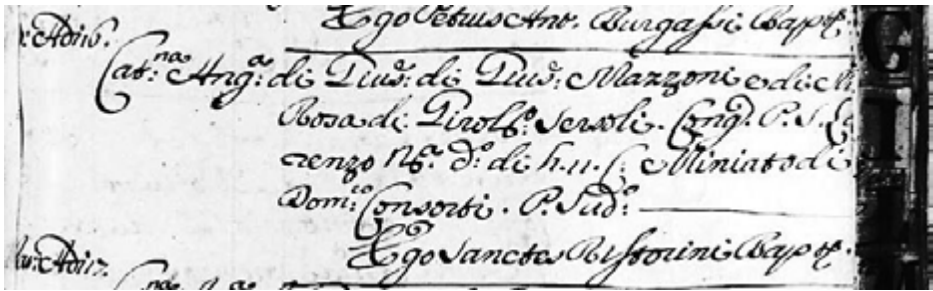 Ego Petrus Ant. Burgassi Bapt.
Adi 16.
Cat.na Ang.a di Gius.e di Gius.e Mazzoni e di M.
Rosa di Girol.o Servoli. Cong. P. S. Lo
renzo N.a d.o di h. 11. C. Miniato di
Dom.co Consorti. P. Sud.o
Ego Sanctes Ristorini Bapt.
Adi 17.